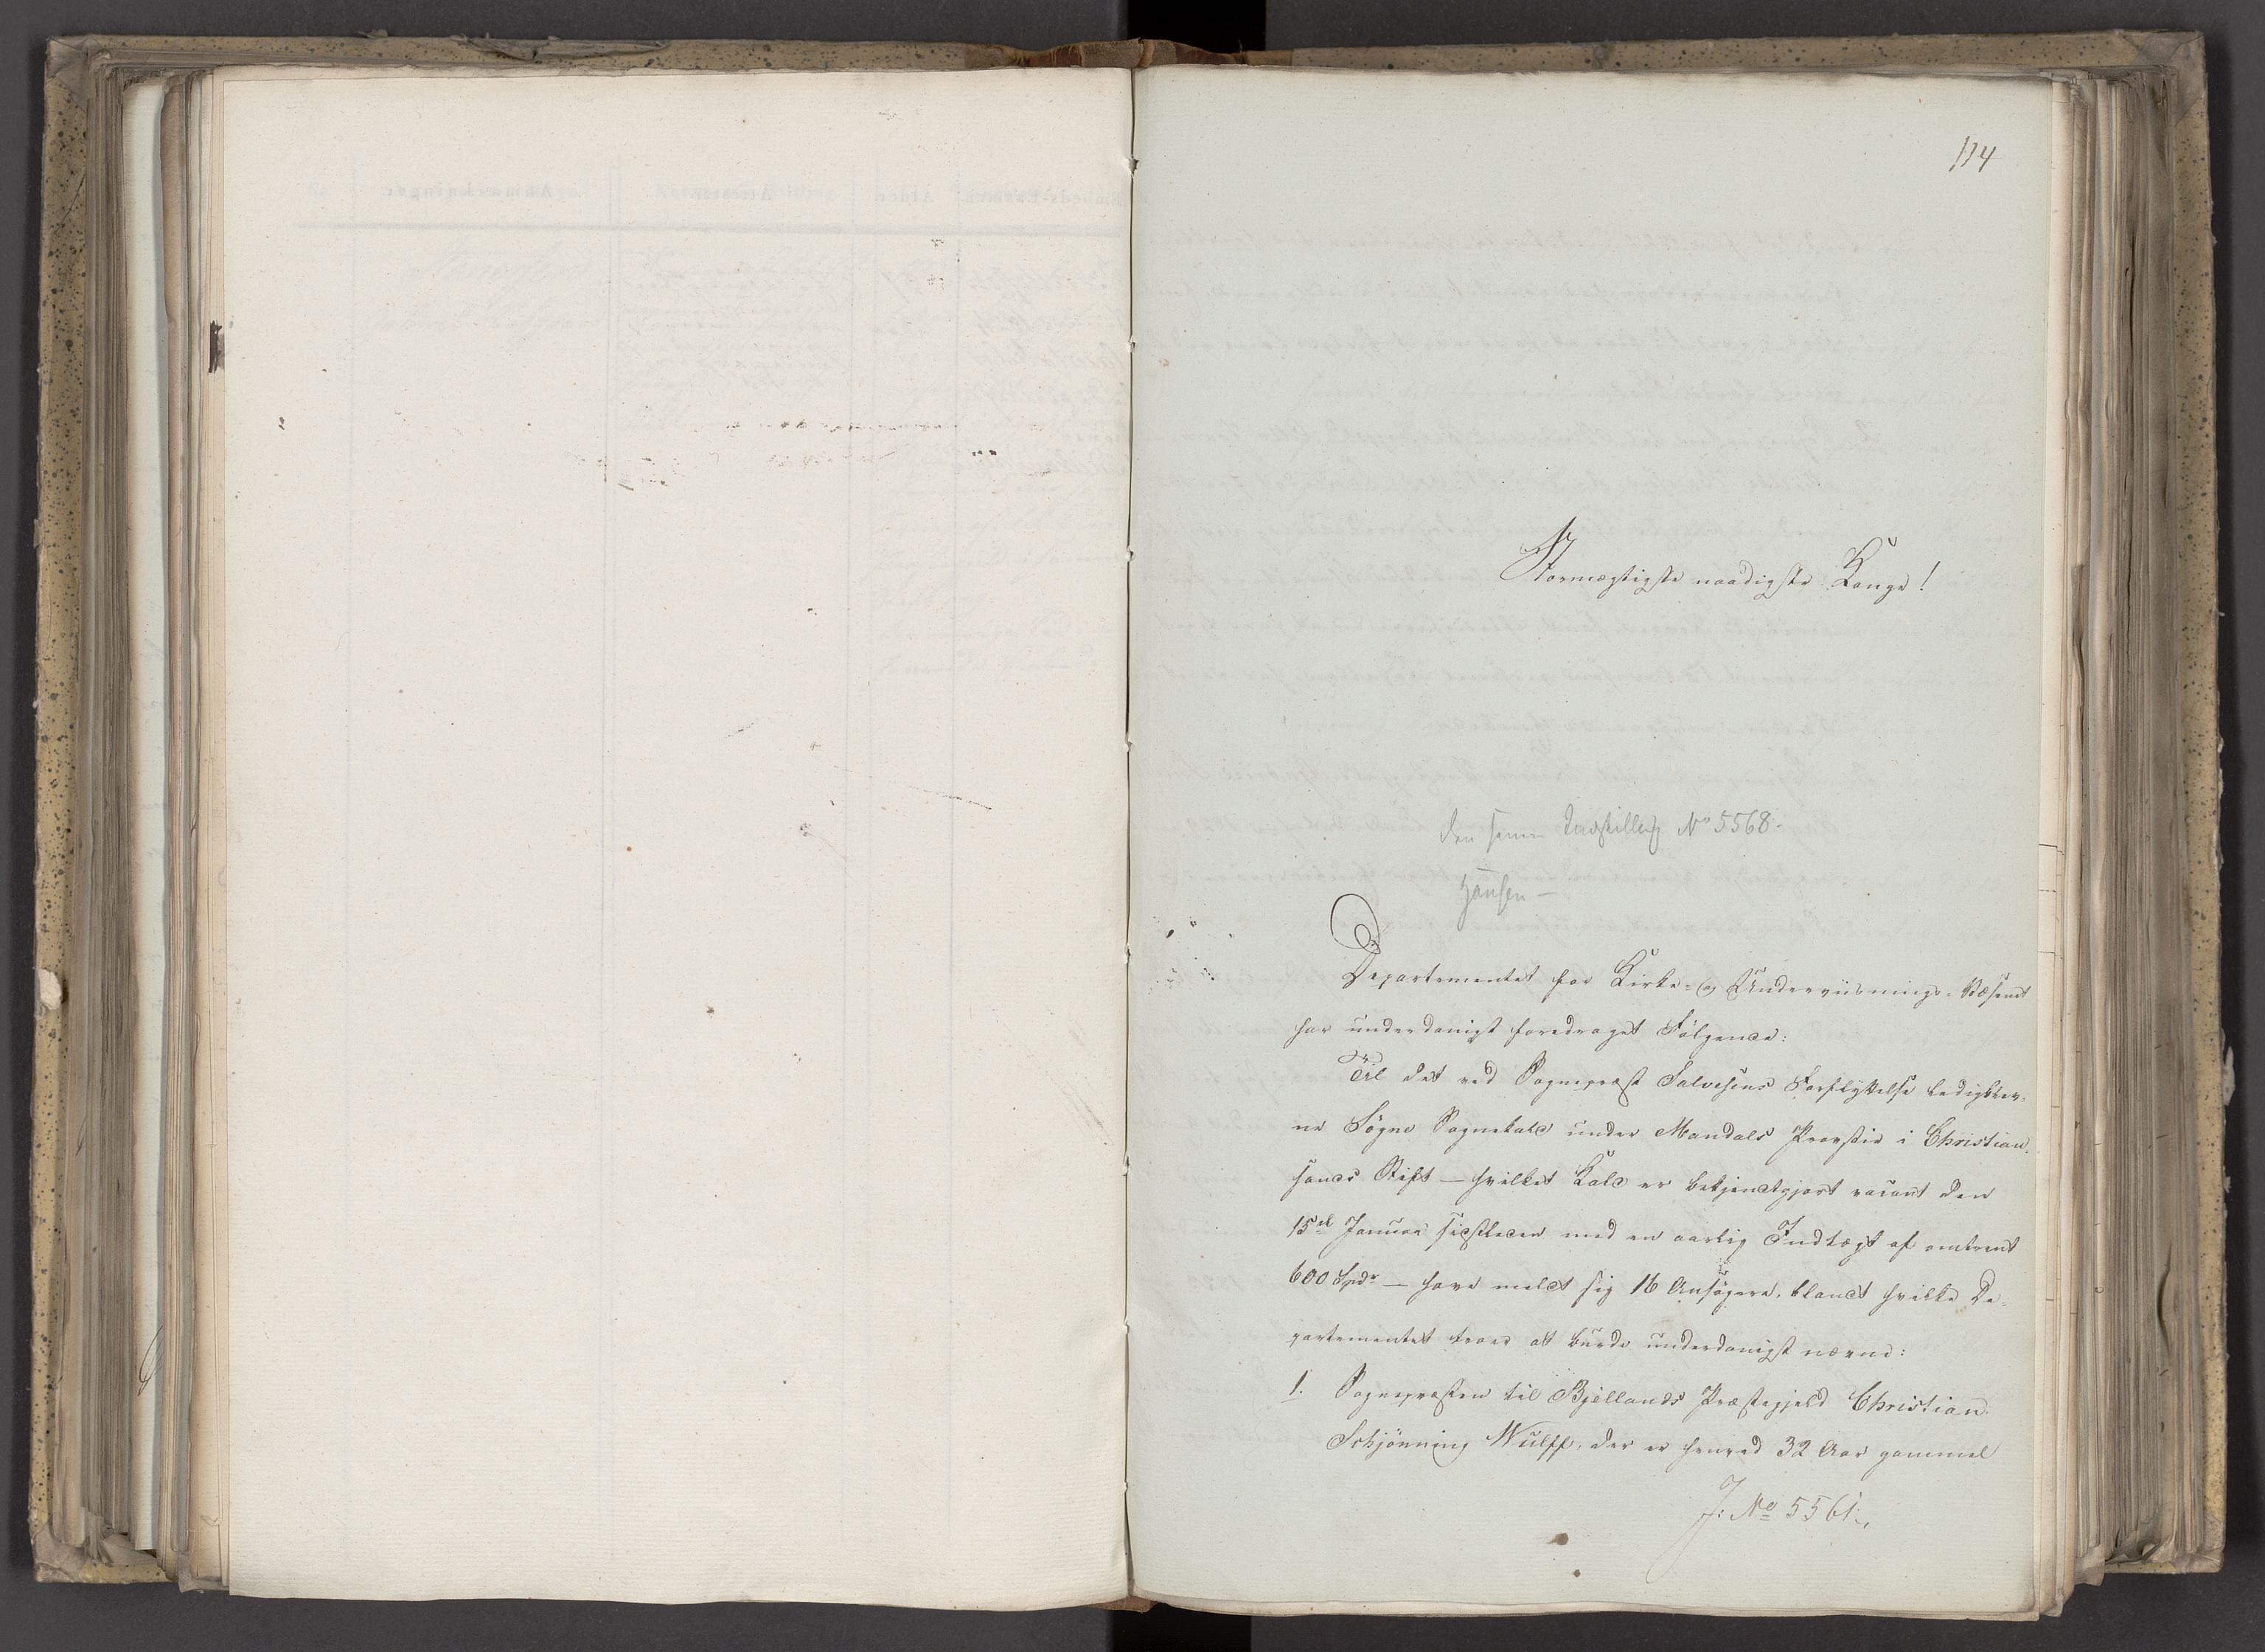 114
Stormægtigste naadigste Konge!
den senere Indstilling No 5568.
Hansen -
Departementet for Kirke- og Underviisnings-Væsenet
har underdanigst foredraget Følgende:
Til det ved Sognepræst Salvesens Forflyttelse ledigblev-
ne Søgne Sognekald under Mandals Provstie i Christian-
sands Stift - hvilket Kald er bekjendtgjort vacant den
15de Januar sidstleden med en aarlig Indtægt af omtrent
600 Spdr - have meldt sig 16 Ansøgere, blandt hvilke De-
partementet troer at burde underdanigst nævne:
1. Sognepræsten til Bjellands Præstegjeld Christian
Schjönning Wulff, der er henved 32 Aar gammel
J: No 5561.